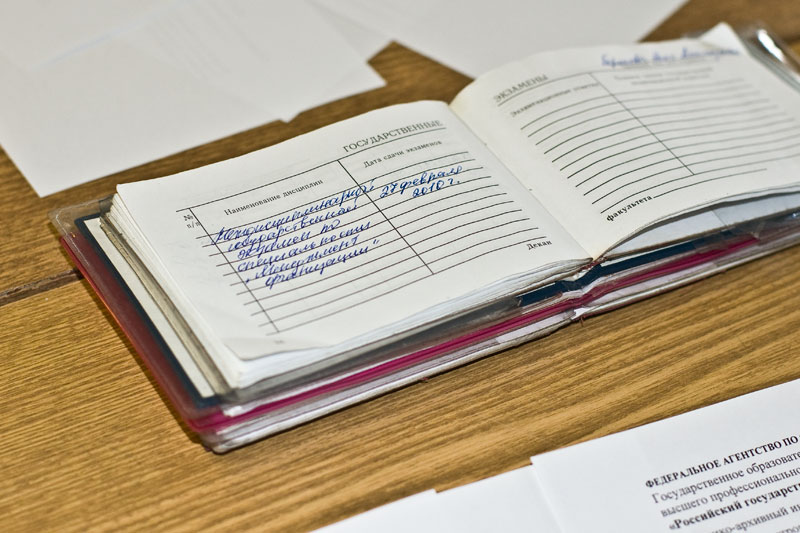 ГОСУДАРСТВЕННЫЕ
№ п/п
Наименование дисциплин
Дата сдачи экзаменов
Междисциплинарный
государственный
экзамен по
специальности
"Менеджмент
организации"
27 февраля
2010 г.
Декан
ЭКЗАМЕНЫ
Экзаменационные отметки
факультета
ФЕДЕРАЛЬНОЕ АГЕНТСТВО ПО
Государственное образовате
высшего профессионально
«Российский государств
архивный ин